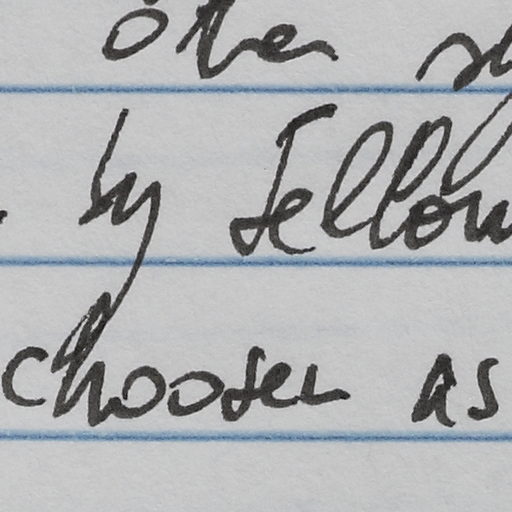 other
by fellow
choosen as